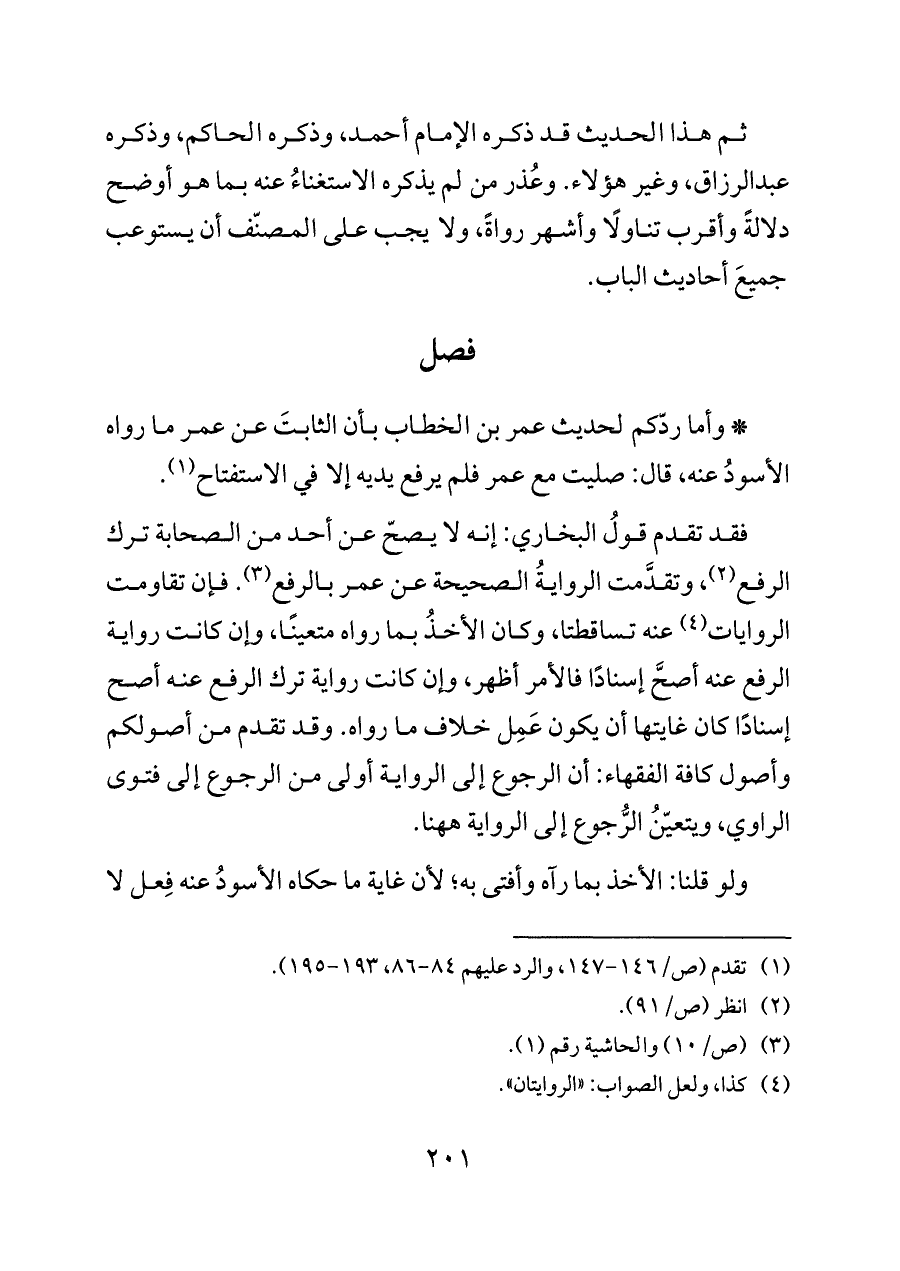 ثم هذا الحديث قد ذكره الإمام أحمد، وذكره الحاكم، وذكره
عبدالرزاق، وغير هؤلاء. وعُذر من لم يذكره الاستغناءُ عنه بما هو أوضح
دلالةً وأقرب تناولًا وأشهر رواةً، ولا يجب على المصنّف أن يستوعب
جميعَ أحاديث الباب.
فصل
* وأما ردّكم لحديث عمر بن الخطاب بأن الثابتَ عن عمر ما رواه
الأسودُ عنه، قال: صليت مع عمر فلم يرفع يديه إلا في الاستفتاح(١).
فقد تقدم قولُ البخاري: إنه لا يصحّ عن أحد من الصحابة ترك
الرفع(٢)، وتقدَّمت الروايةُ الصحيحة عن عمر بالرفع(٣). فإن تقاومت
الروايات(٤) عنه تساقطتا، وكان الأخذُ بما رواه متعينًا، وإن كانت رواية
الرفع عنه أصحَّ إسنادًا فالأمر أظهر، وإن كانت رواية ترك الرفع عنه أصح
إسنادًا كان غايتها أن يكون عَمِل خلاف ما رواه. وقد تقدم من أصولكم
وأصول كافة الفقهاء: أن الرجوع إلى الرواية أولى من الرجوع إلى فتوى
الراوي، ويتعيّنُ الرُّجوع إلى الرواية ههنا.
ولو قلنا: الأخذ بما رآه وأفتى به؛ لأن غاية ما حكاه الأسودُ عنه فِعل لا
(١) تقدم (ص/ ١٤٦-١٤٧، والرد عليهم ٨٤-٨٦، ١٩٣-١٩٥).
(٢) انظر (ص/ ٩١).
(٣) (ص/ ١٠) والحاشية رقم (١).
(٤) كذا، ولعل الصواب: «الروايتان».
٢٠١